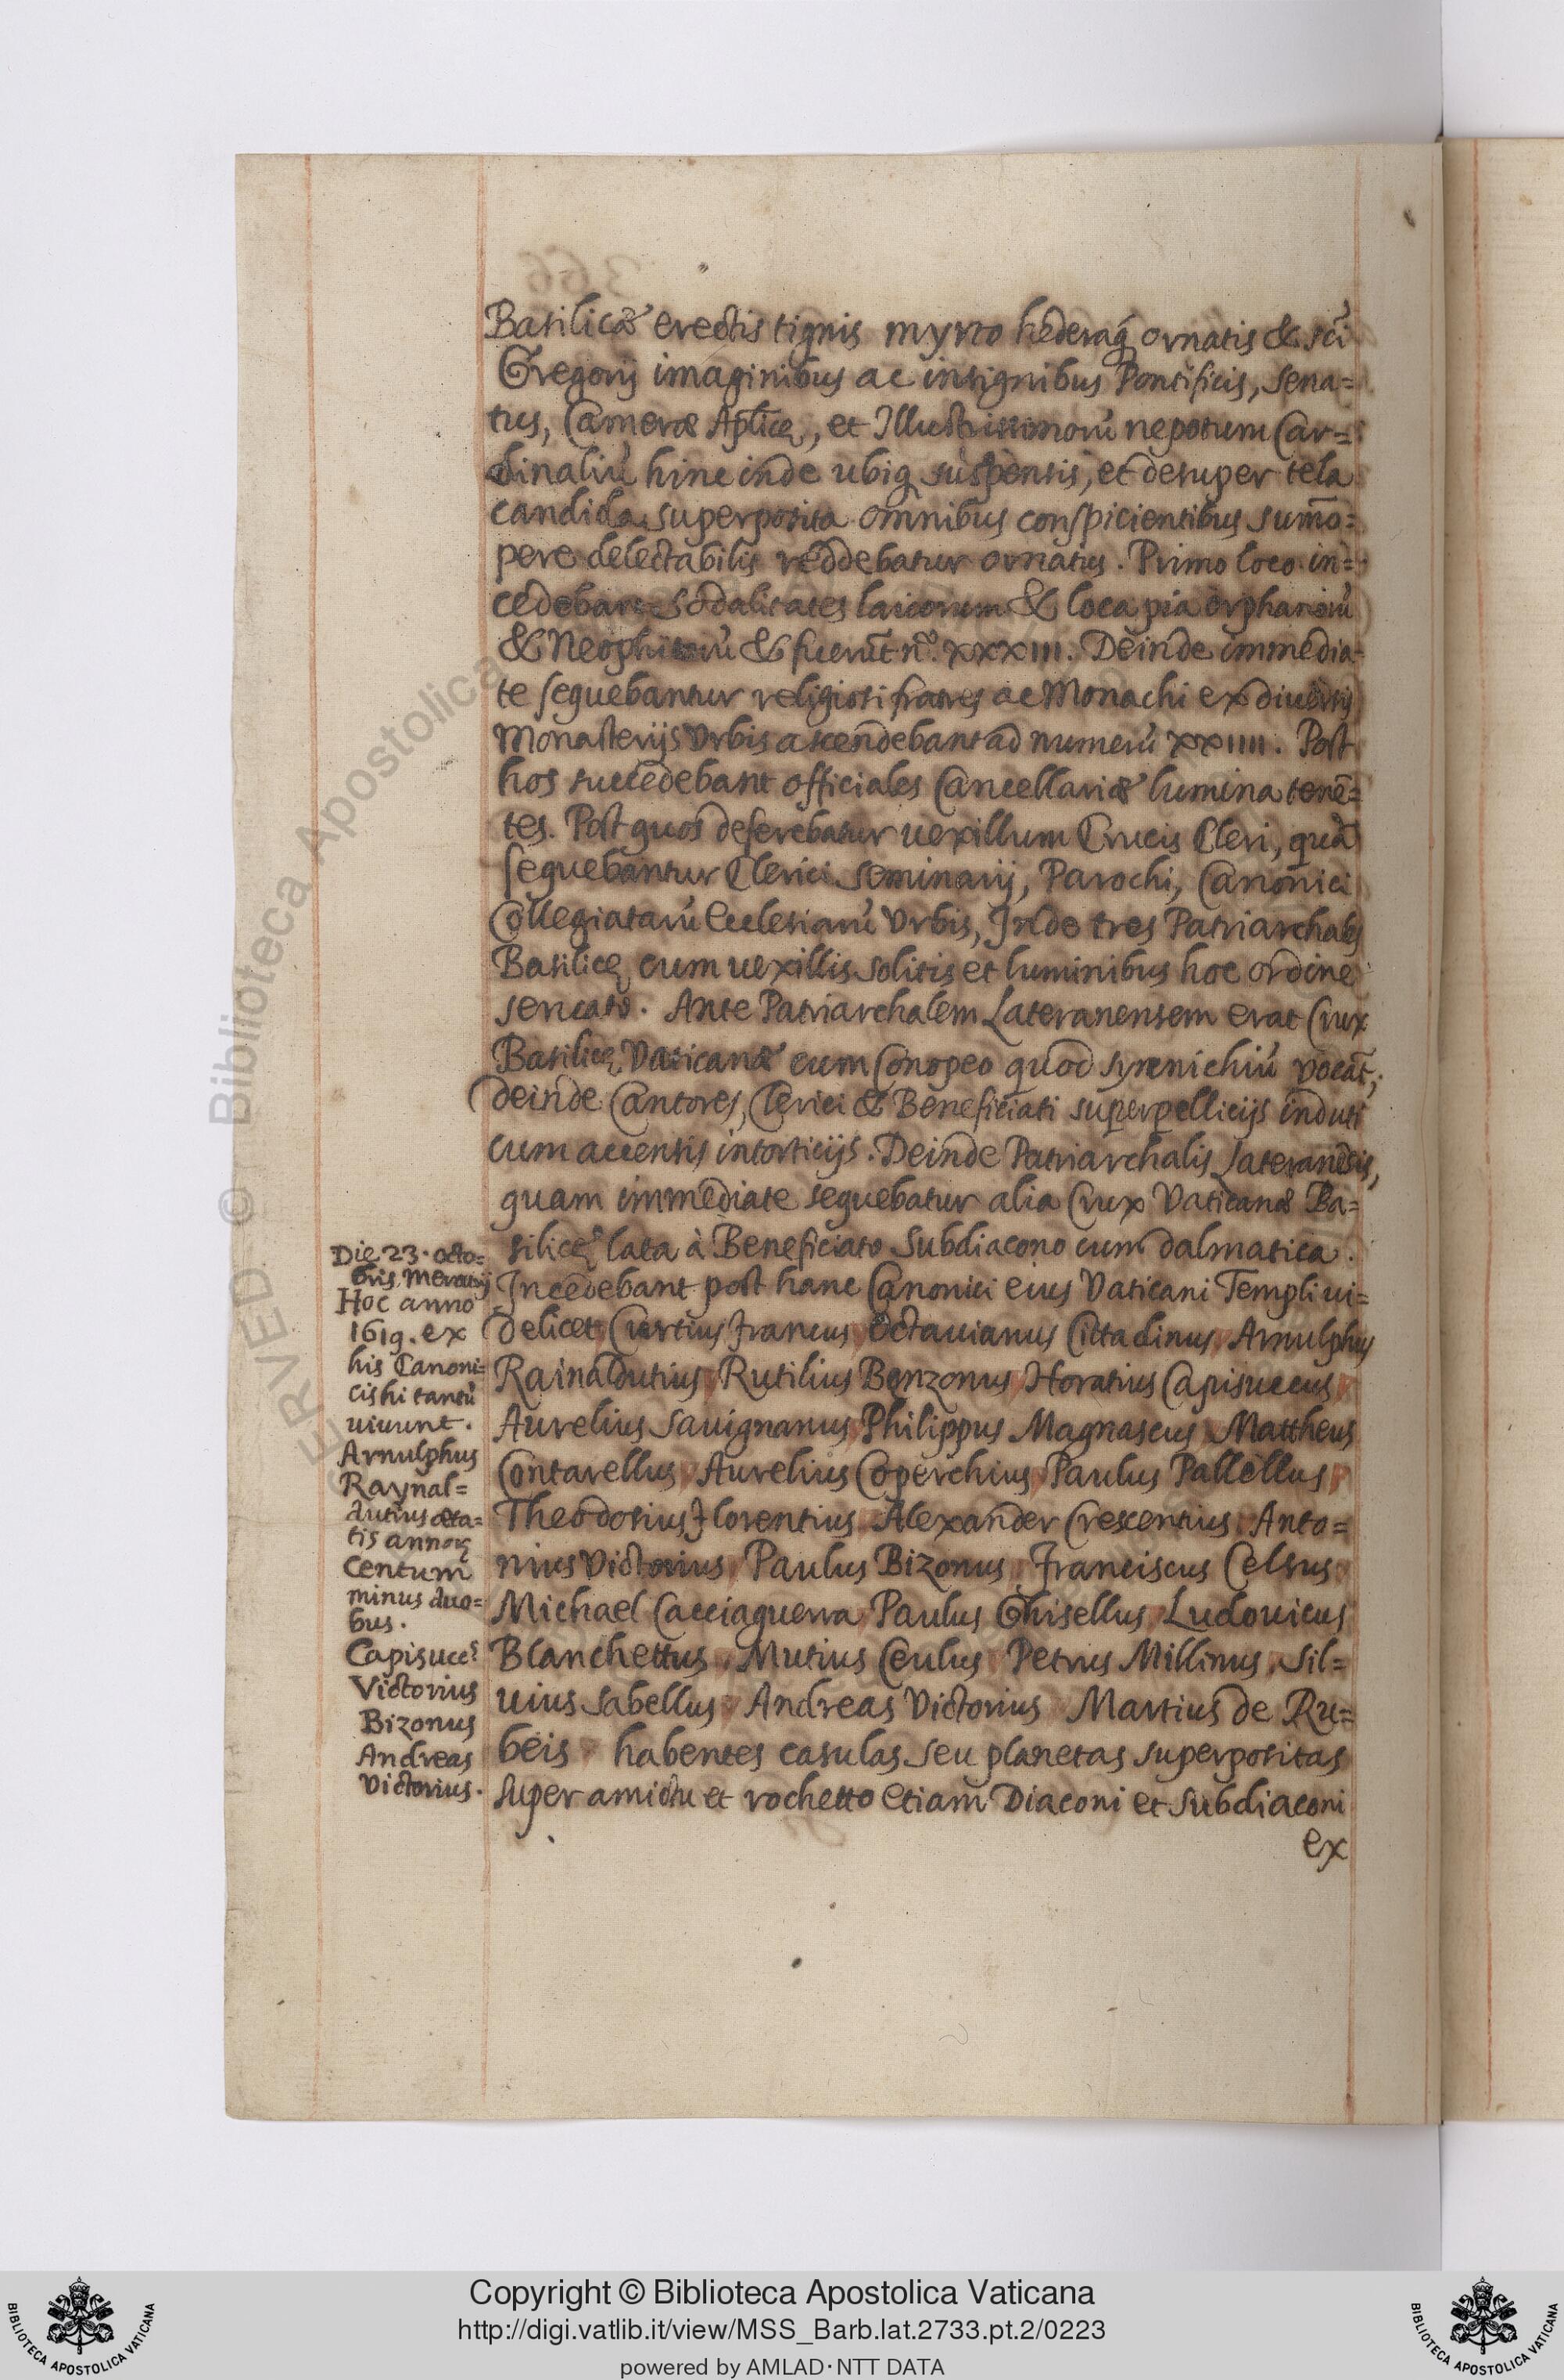 Basilicæ erectis tignis myrto hederaq́ ornatis & sc̄i
Gregorij imaginibus ac insignibus Pontificis, sena=
tus, Cameræ Apl̄icę, et Illustrissimorū nepotum Car=
dinaliū hinc inde ubiq suspensis, et desuper tela
candida superposita omnibus conspicientibus sum̄o=
pere delectabilis reddebatur ornatus. Primo loco in=
cedebant Sodalitates laicorum & loca pia orphanorū
& Neophitorū & fuerūt n.º XXXIII. Deinde immedia=
te sequebantur religiosi fratres ac Monachi ex diuersis
Monasterijs Vrbis ascendebant ad numerū XXIIII. Post
hos succedebant officiales Cancellariæ lumina tenē=
tes. Post quos deferebatur uexillum Crucis Cleri, quā
sequebantur Clerici seminarij, Parochi, Canonici
Collegiatarū Ecclesiarū Vrbis, Inde tres Patriarchales
Basilicę cum uexillis solitis et luminibus hoc ordine
seruato. Ante Patriarchalem Lateranensem erat Crux
Basilicę Vaticanæ cum Conopeo quod synnichiū vocāt;
deinde Cantores, Clerici & Beneficiati superpellicijs induti
cum accensis intorticijs. Deinde Patriarchalis Lateranēsis,
quam immediate sequebatur alia Crux Vaticanæ Ba=
silicę lata à Beneficiato Subdiacono cum dalmatica.
Incedebant post hanc Canonici eius Vaticani Templi ui=
delicet Curtius Francus Octauianus Cittadinus Arnulphus
Rainaldutius Rutilius Benzonus Horatius Capisuccus
Aurelius Sauignanus Philippus Magnascus Mattheus
Contarellus Aurelius Coperchius Paulus Pallellus
Theodosius Florentius Alexander Crescentius Anto=
nius Victorius Paulus Bizonus Franciscus Celsus
Michael Cacciaguerra Paulus Ghisellus Ludouicus
Blanchettus Mutius Ceulus Petrus Millinus Sil=
uius Sabellus Andreas Victorius Martius de Ru=
beis habentes casulas seu planetas superpositas
super amictu et rochetto etiam Diaconi et Subdiaconi
ex
Die 23. octo=
bris Mercurij
Hoc anno
1619. ex
his Canoni=
cis hi tantū
uiuunt.
Arnulphus
Raynal=
dutius æta=
tis annoꝝ
centum
minus duo=
bus.
Capisucc.s
Victorius
Bizonus
Andreas
Victorius.
© Biblioteca Apostolica
Copyright © Biblioteca Apostolica Vaticana
http://digi.vatlib.it/view/MSS_Barb.lat.2733.pt.2/0223
powered by AMLAD·NTT DATA
BIBLIOTECA APOSTOLICA VATICANA
BIBLIOTECA APOSTOLICA VATICANA